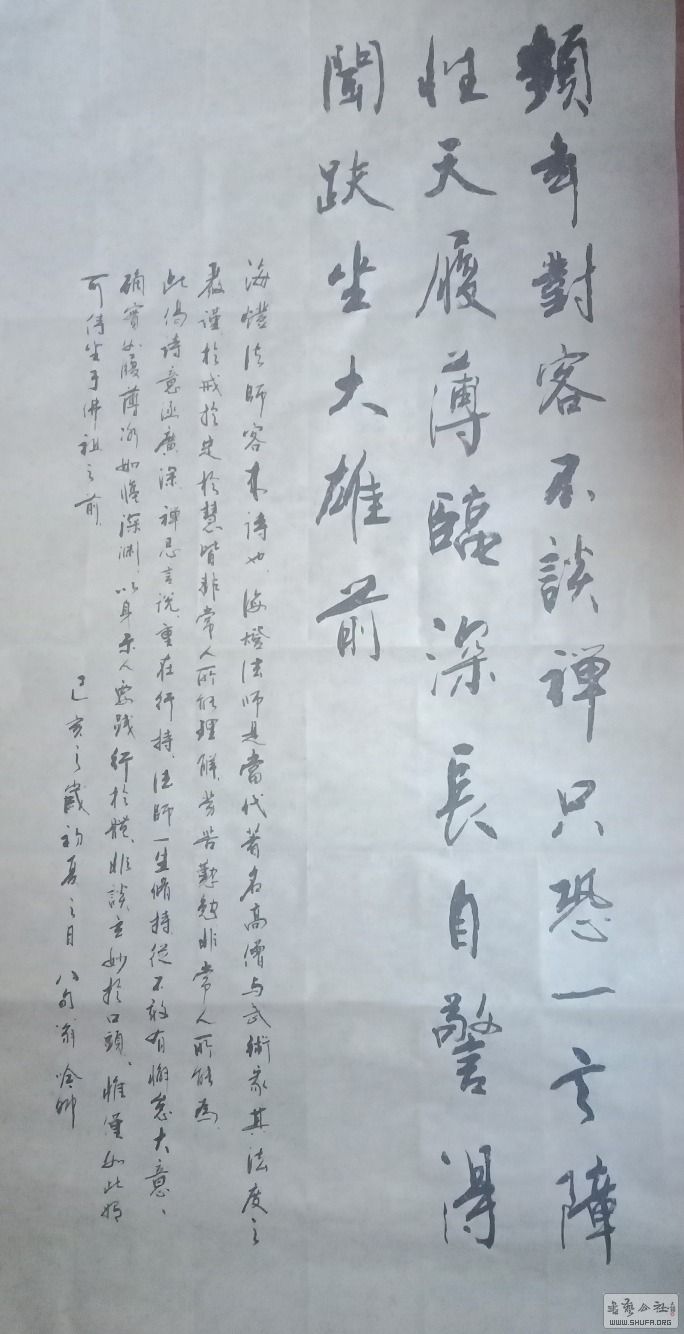 頻年對客不談禪只恐一言障
性天履薄臨深長自警得
聞趺坐大雄前
海燈法師客來詩也、海燈法師是當代著名高僧与武術家其法度之
嚴謹於戒於定於慧皆非常人所能理解勞苦勤勉非常人所能為
此偈詩意涵廣深禅忌言説、重在行持、法師一生脩持從不敢有懈怠大意、
確實如履薄冰如臨深渊、以身示人要践行於體、非談玄妙於口頭、惟僅如此
可侍坐于佛祖之前
己亥之歲初夏之日八旬翁
書藝公社
WWW.SHUFA.ORG